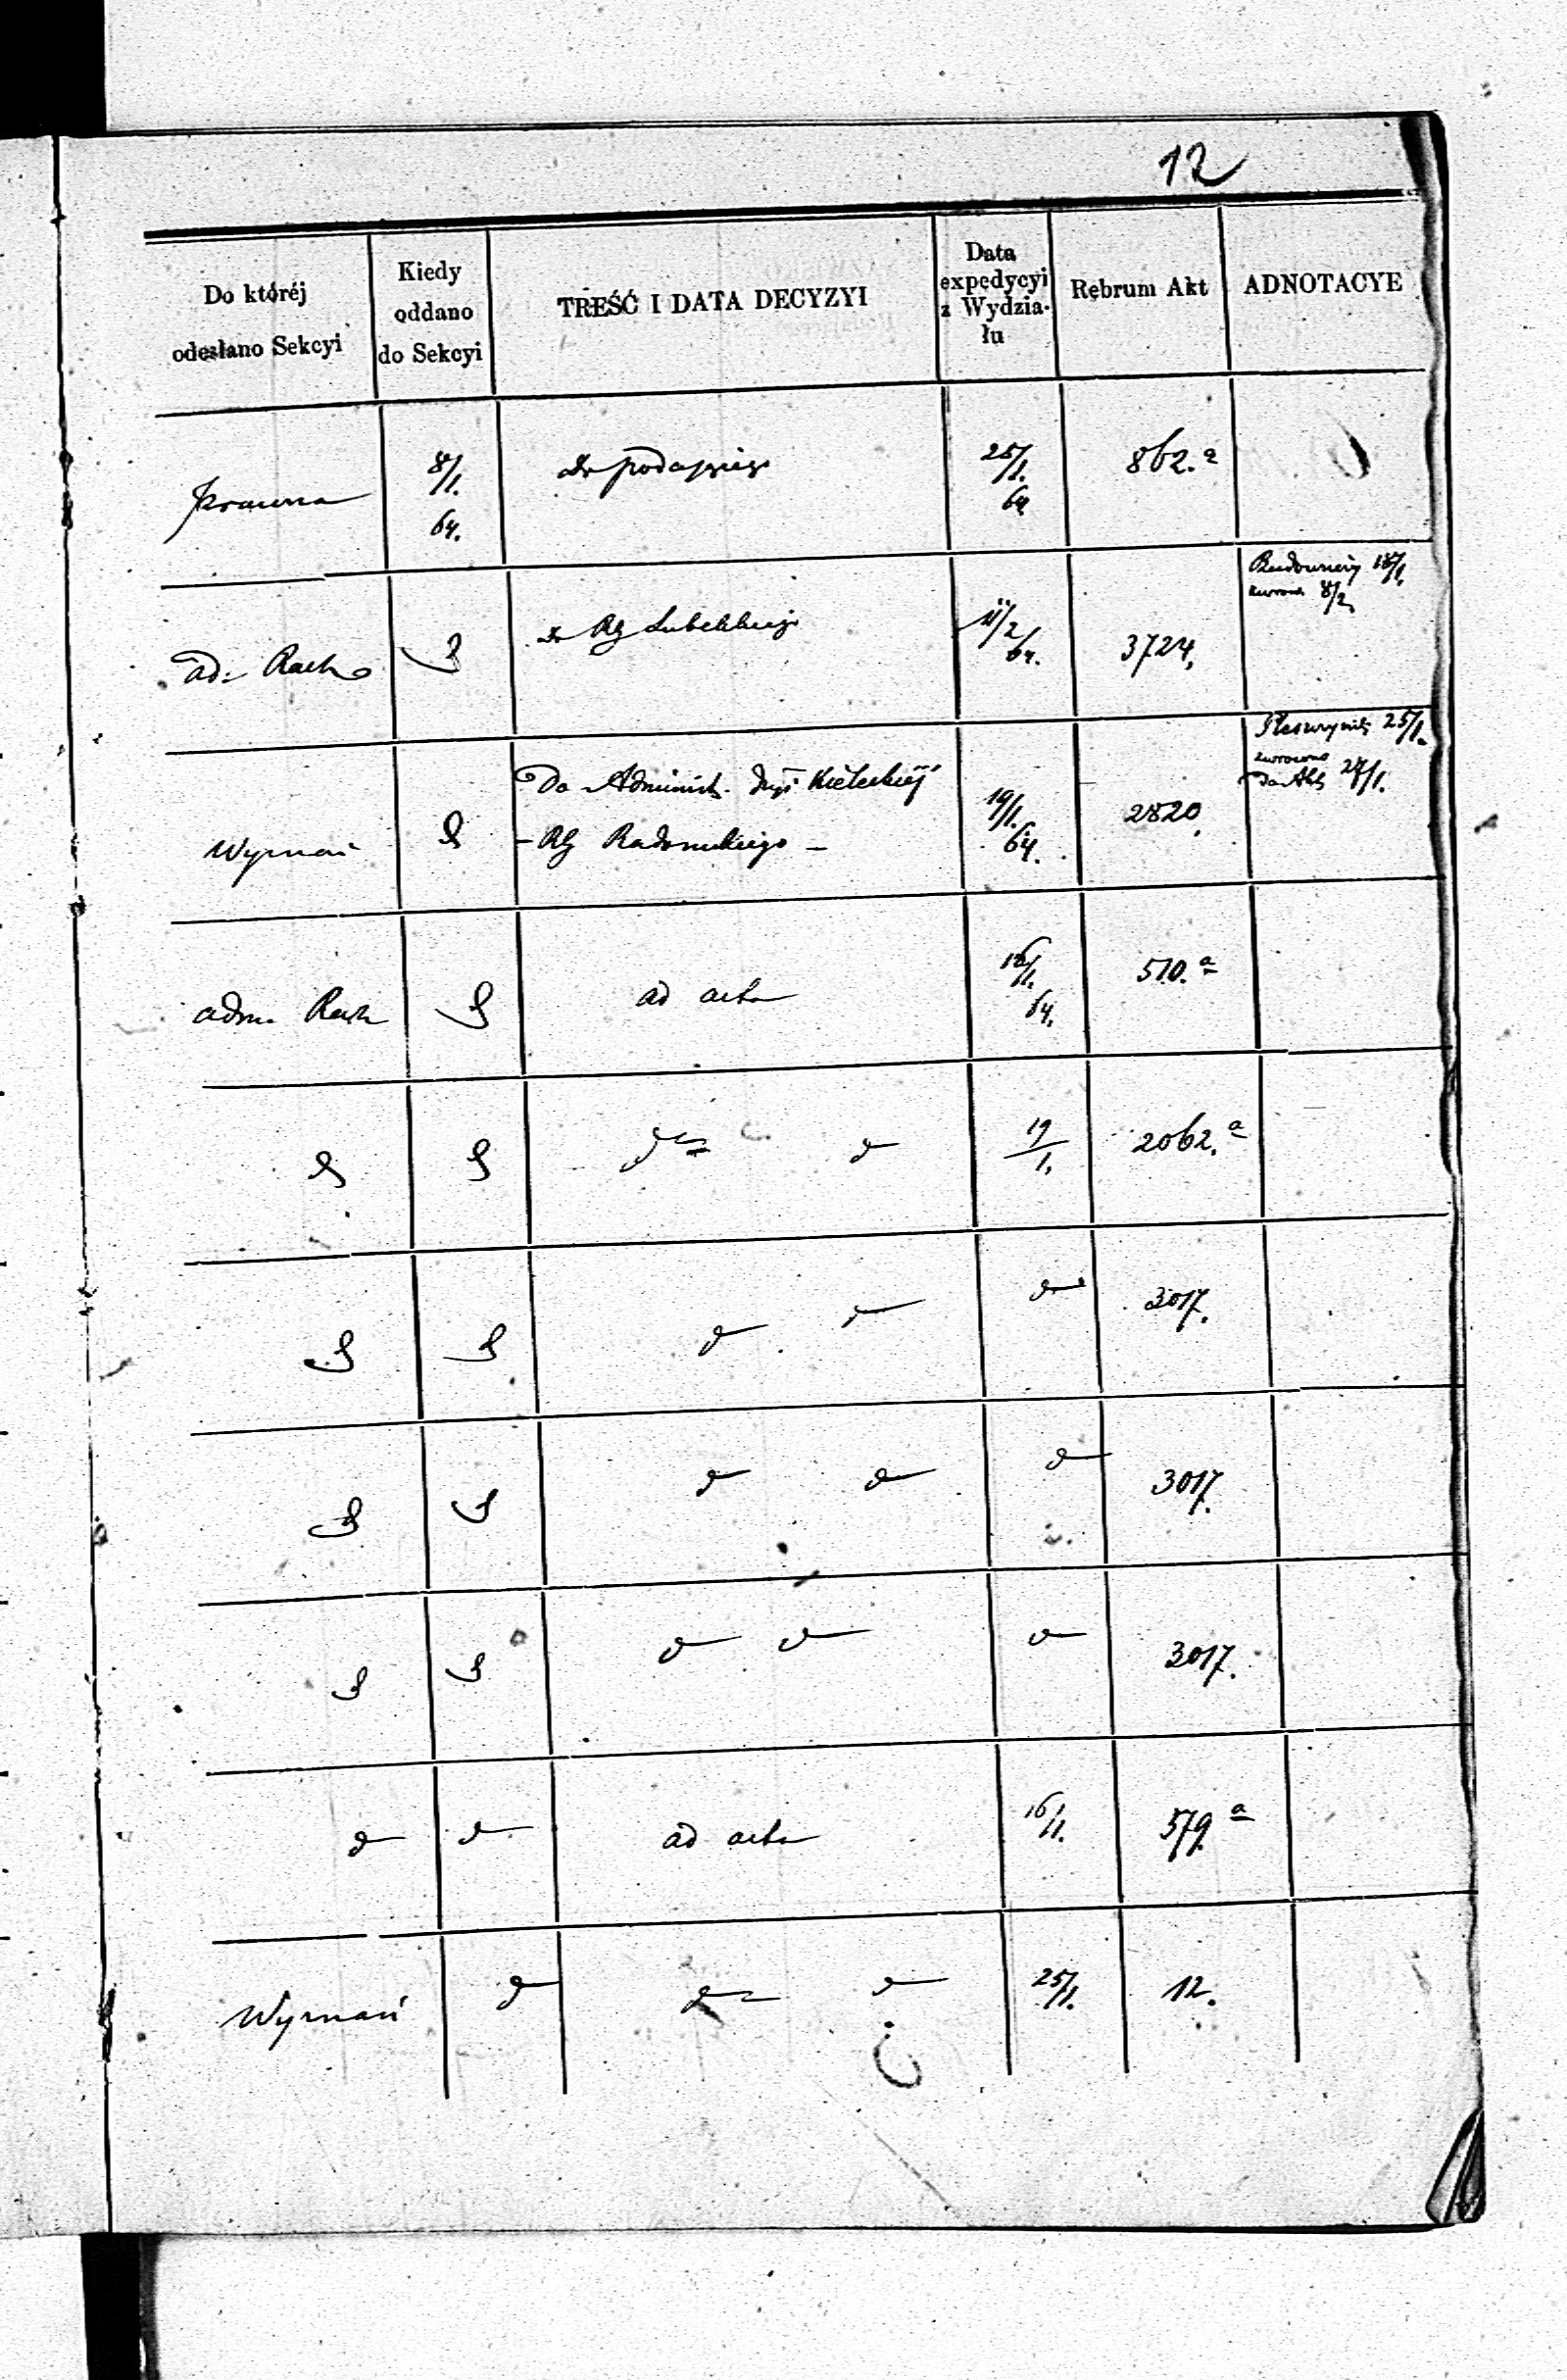 12
Do któréj
odesłano Sekcyi
Kiedy
oddano
do Sekcyi
TREŚĆ I DATA DECYZYI
Data
expedycyi
z Wydzia-
łu
Rębrum Akt
ADNOTACYE
Prawna
8/1.
64.
Do podającego
25/1.
64
862.a
ad: Rach
Do RG Lubelskiego
11/2
64.
3724.
Budowniczy 18/1.
zwrócone 8/2
Wyznań
Do Administ. Dyi Kieleckiéj
- RG Radomskiego -
19/1.
64.
2820
25/1.
zwrócono
do Akt 27/1.
adm. Rach
ad acta
16/1.
64.
510.a
19/1.
2062.a
3017.
3017.
3017.
ad acta
16/1.
579.a
Wyznań
25/1.
12.